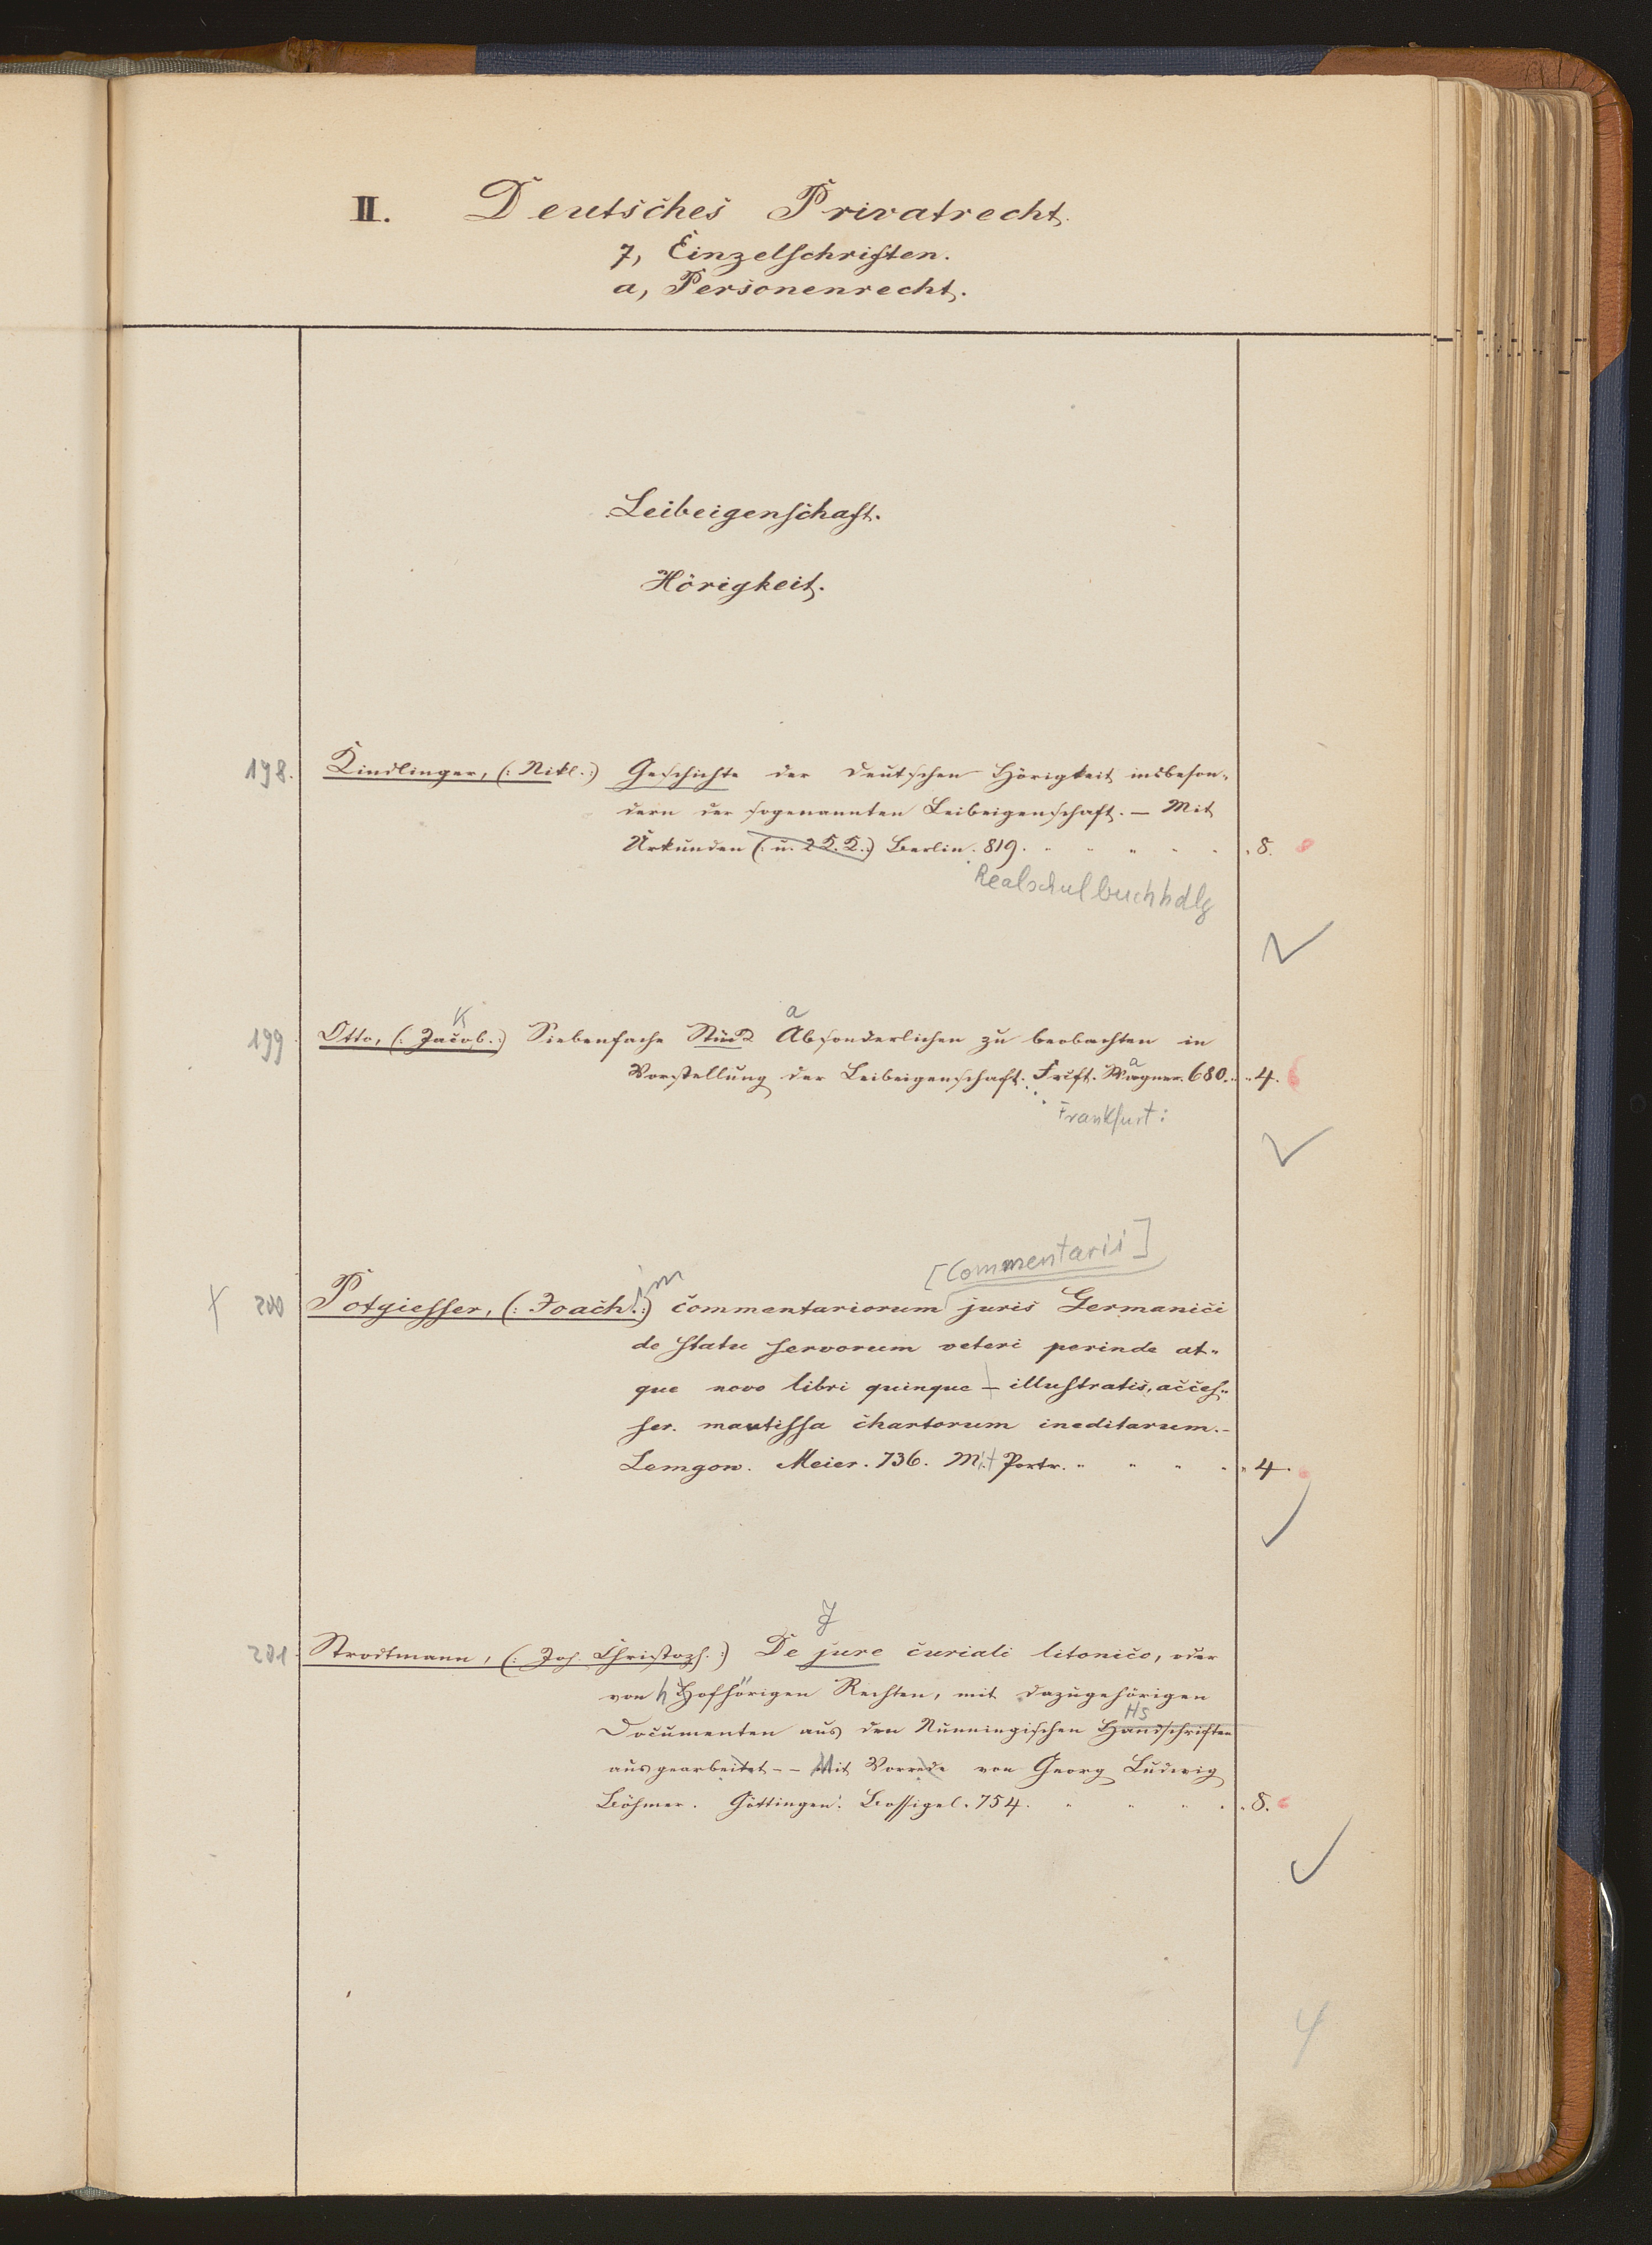 II. Deutsches Privatrecht.
7, Einzelschriften.
a, Personenrecht.
Leibeigenschaft.
Hörigkeit.
198. Kindlinger, (: Nikl. :) Geschichte der deutschen Hörigkeit insbeson-
dern der sogenannten Leibeigenschaft. — Mit
Urkunden (: u. 2 K. K. :) Berlin. 819. " " " " " 8.
Realschulbuchhdlg
K a
199 Otto, (: Jacob. :) Siebenfache Stück Absonderlichen zu beobachten in
a
Vorstellung der Leibeigenschaft. Frift. Wagner. 680. " 4.
Frankfurt:
[Commentarii]
im
200 Potgiesser, (: Joach. :) commentariorum juris Germanici
de statu servorum veteri perinde at-
que novo libri quinque — illustratis, acces-
ser. mantissa chartorum ineditarum. -
Lemgow. Meier. 736. Mit Portr. " " " " 4.
J
201 Strodtmann, (: Joh. Christoph. :) De jure curiali litonico, oder
von h Hofhörigen Rechten, mit dazugehörigen
HS
Documenten aus den Nunningischen Handschriften
ausgearbeitet - - Mit Vorrede von Georg Ludwig
Böhmer. Göttingen: Bossigel. 754. " " " " 8.
4